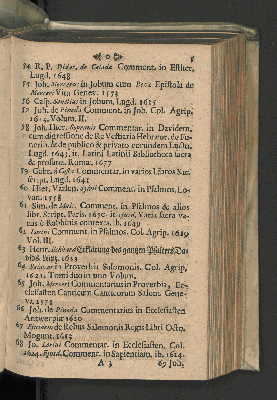 54 R. P. Didac. de Celada Comment. in Esther,
Lugd. 1648
55 Joh. Merceri in Jobum cum Bezæ Epistola de
Merceri Vita Genev. 1573
56 Casp. Sanctius in Jobum, Lugd. 1625
57 Joh. de Pineda Comment. in Job. Col. Agrip.
1613. Volum. II.
58 Joh. Hier. Commentar. in Davidem,
cum digressione de Re Vestiaria Hebræor. de
neris, & de publico & privato eorundem
Lugd. 1643, it. Latini Latinii Bibliotheca sacra
& profana. Romæ. 1677
59 Comment. in varios Libros
script. Lugd. 1641
60 Comment. in Psalmos, Lo-
van. 1558
61 Sim. de Comment. in Psalmos & alios
libr. Script. sacra va-
ria è Rabbinis ib. 1649
62 Lorini Comment. in Psalmos, Col. Agrip. 1619
Vol. III.
63 Erklärung des gantzen Psalters Da-
vids.
64 in Proverbia Salomonis, Col. Agrip.
1621. Tomi duo in uno Volum.
65 Joh. Merceri Commentarius in Proverbia, Ec-
clesiasten Canticum Canticorum Salom. Gene-
væ. 1573
66 Joh. de Pineda Commentarius in Ecclesiasten
Antwerpiæ 1620
67 Ejusdem de Rebus Salomonis Regis Libri Octo,
Mogunt. 1613
68 Jo. Lorini Commentar. in Ecclesiasten, Col.
1624. Ejusd. Comment. in Sapientiam, ib. 1624.
A 3 69 Joh.